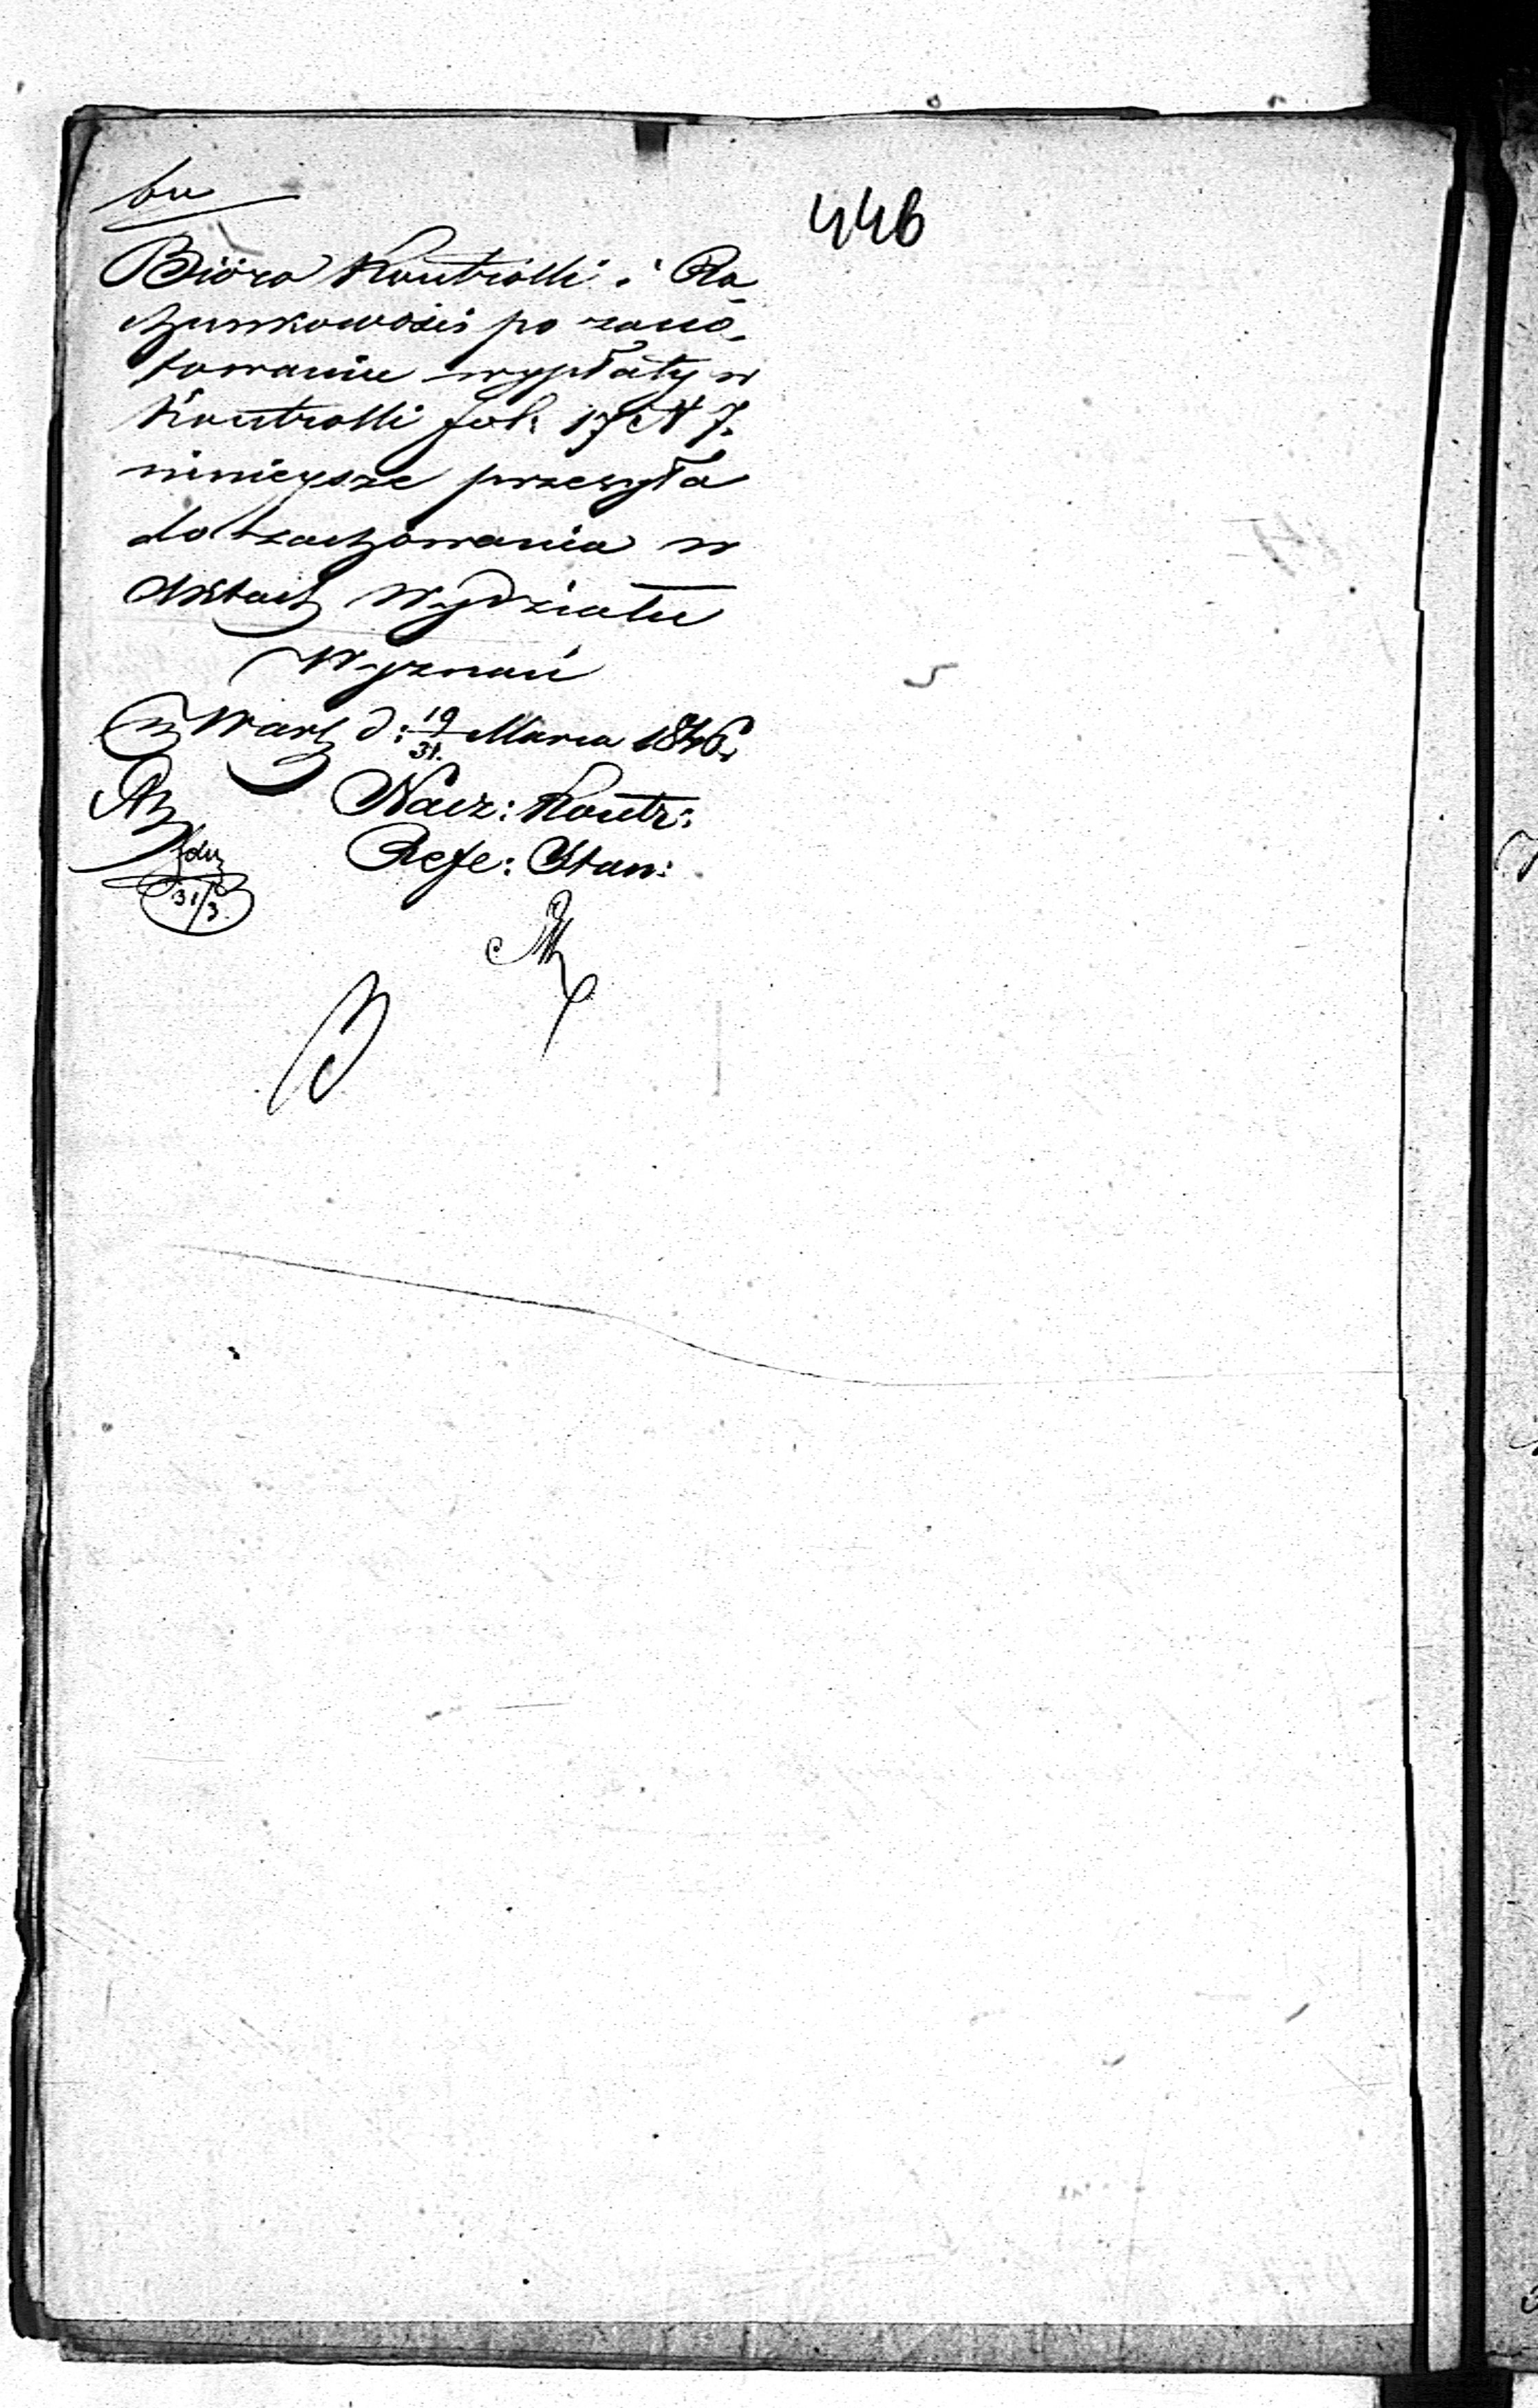 bu
446
Bióro Kontrolli i Ra-
chunkowości po zano-
towaniu wypłaty w
Kontrolli fol: 17 N 7.
niniejsze przesyła
do zachowania w
Aktach Wydziału
Wyznań
w Warsz d: 19/31. Marca 1846.
Nacz: Kontr:
Refe: Stan:
31/3.